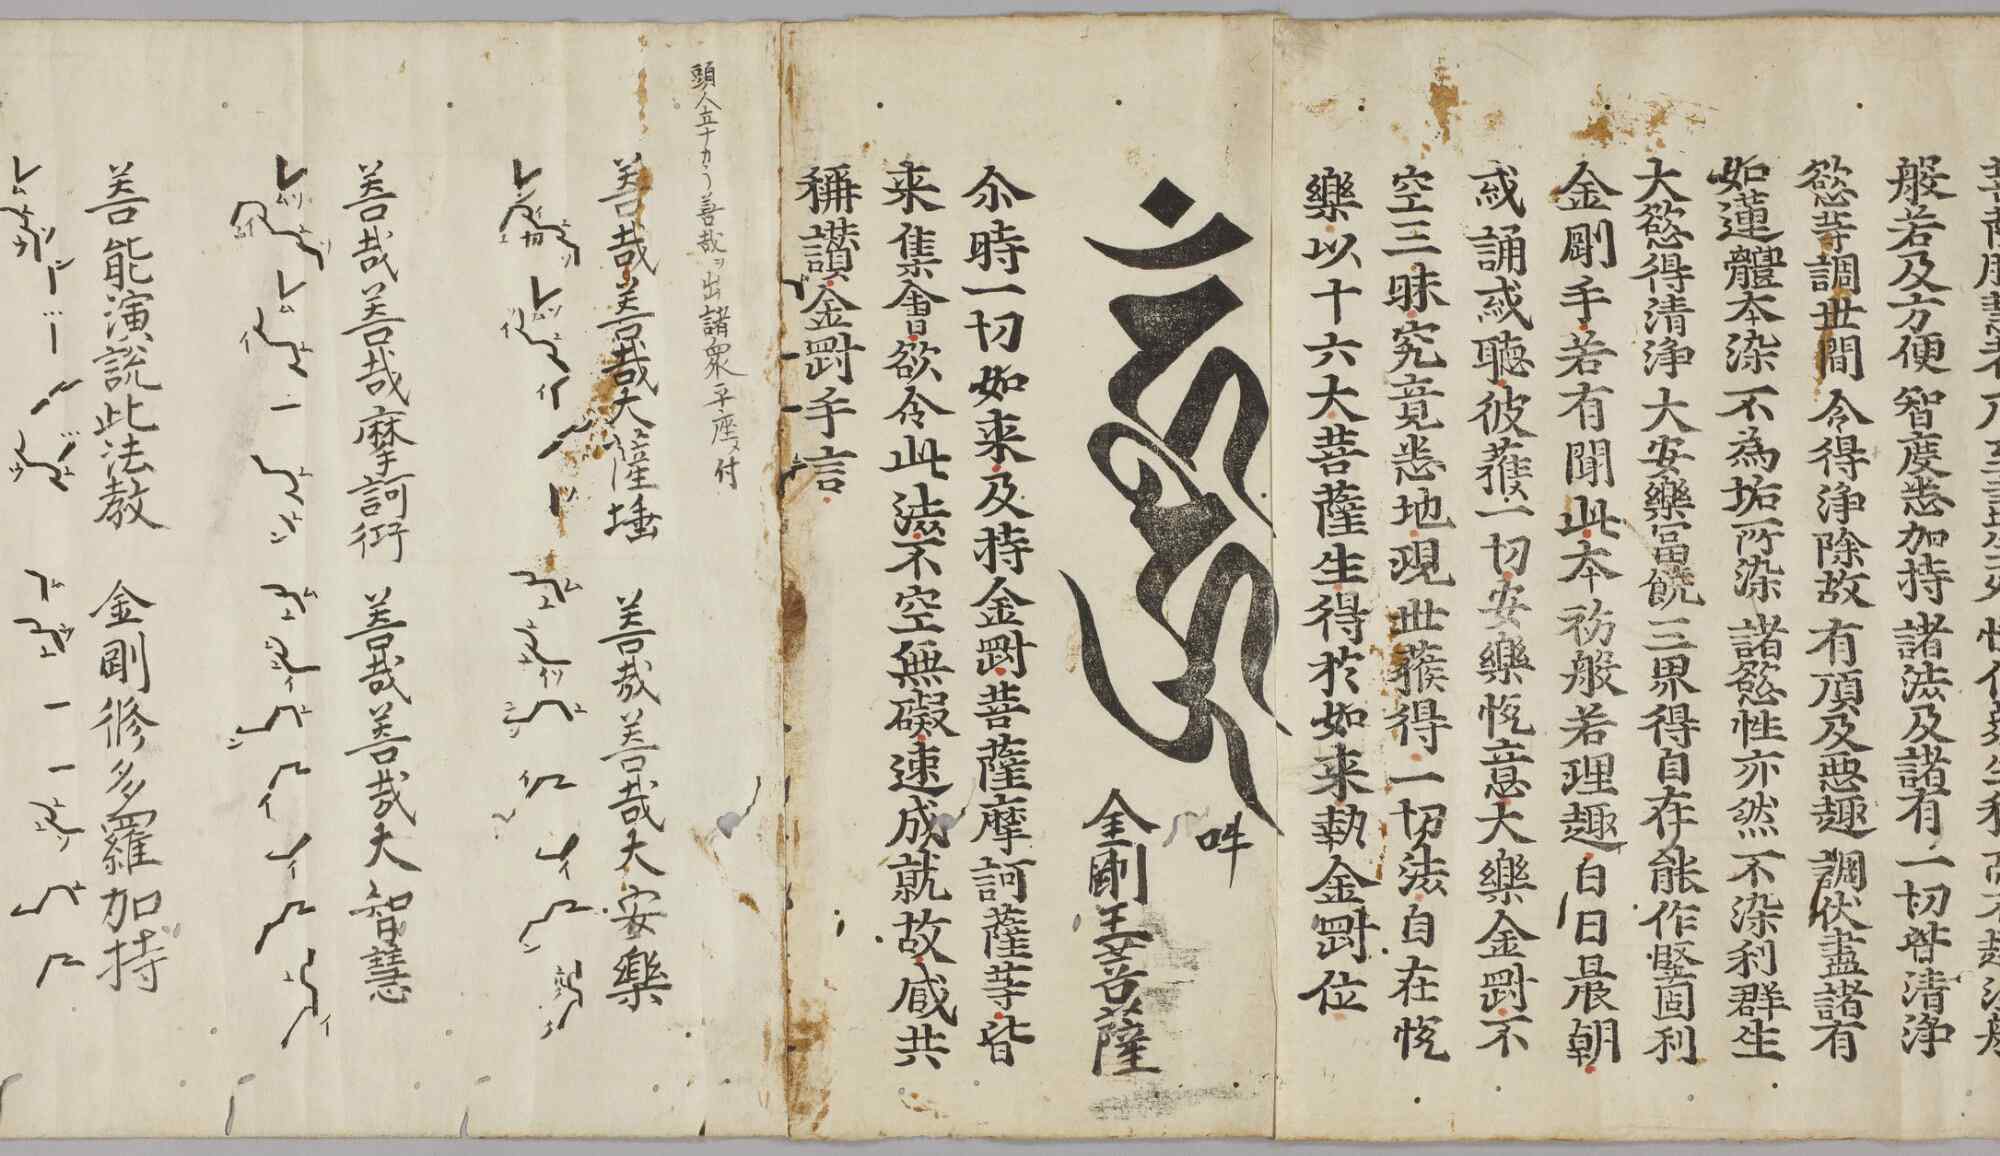 菩薩勝慧者 乃至盡生死 恒作衆生利 而不趣涅槃
般若及方便 智度悉加持 諸法及諸有 一切皆清浄
慾等調世間 令得浄除故 有頂及惡趣 調伏盡諸有
如蓮體本染 不為垢所染 諸慾性亦然 不染利群生
大慾得清浄 大安樂冨饒 三界得自在 能作堅固利
金剛手若有聞此本初般若理趣日日晨朝
或誦或聴彼獲一切安樂悦意大樂金剛不
空三昧究竟悉地現世獲得一切法自在悦
樂以十六大菩薩生得於如来執金剛位
吽
金剛王菩薩
尒時一切如来及持金剛菩薩摩訶薩等皆
来集會欲令此法不空無礙速成就故咸共
稱讃金剛手言
頭人 善哉ヲ出諸衆平座 付
善哉善哉大薩埵 善哉善哉大安樂
善哉善哉摩訶衍 善哉善哉大智慧
善能演説此法教 金剛修多羅加持